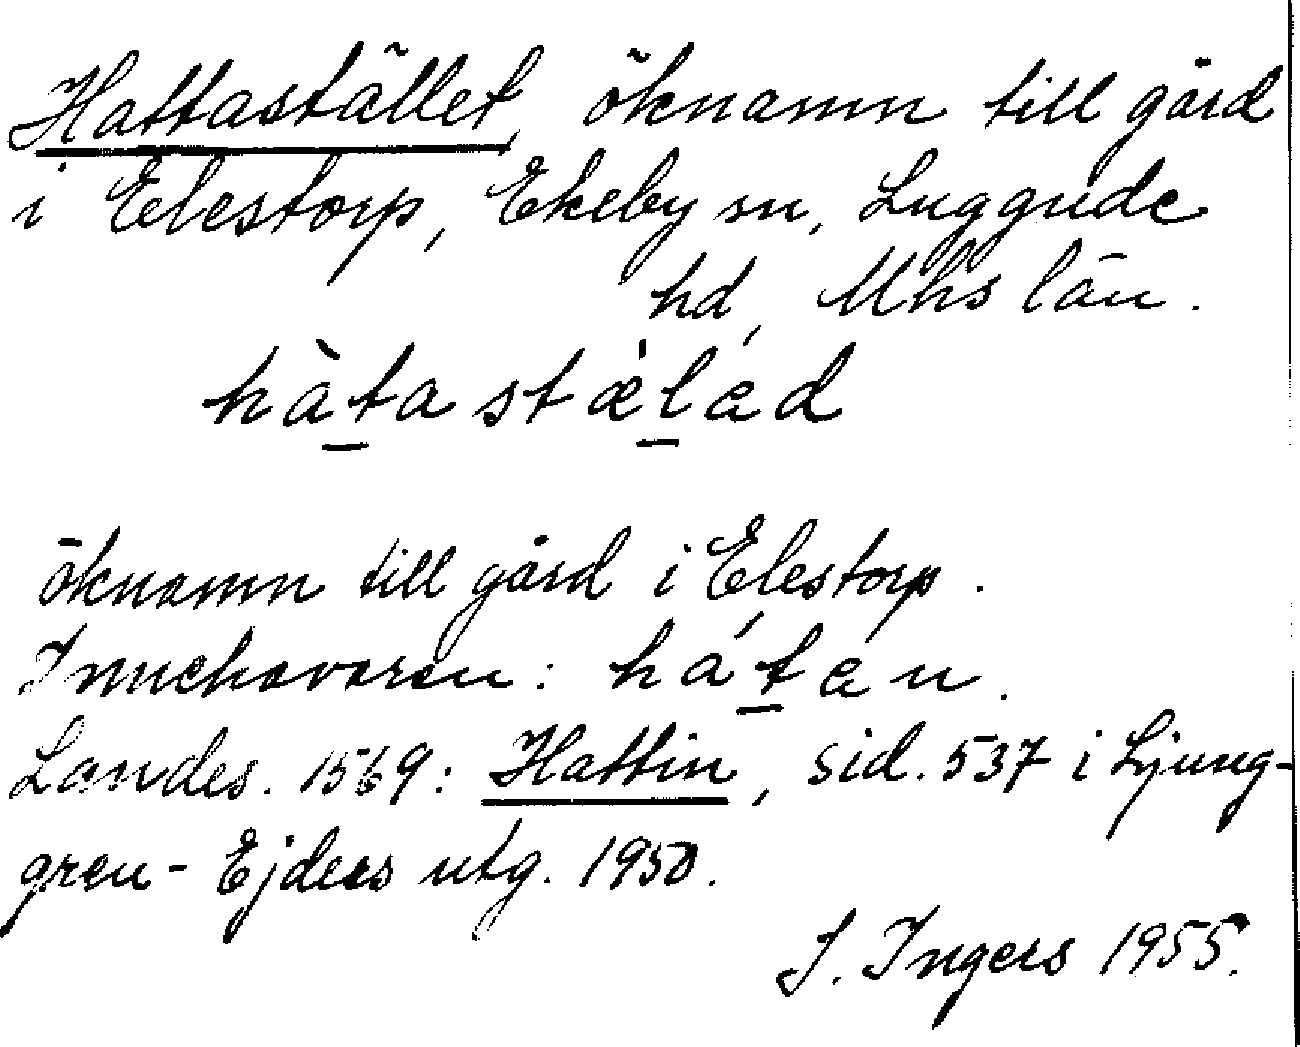 Hattastället, öknamn till gård
i Elestorp, Ekeby sn, Luggude
hd, Mhs län.
hàtastæ̀ləd
öknamn till gård i Elestorp.
Innehavaren: hátən.
Landes. 1569: Hattin, sid. 537 i Ljung-
gren-Ejders utg. 1950.
I. Ingers 1955.